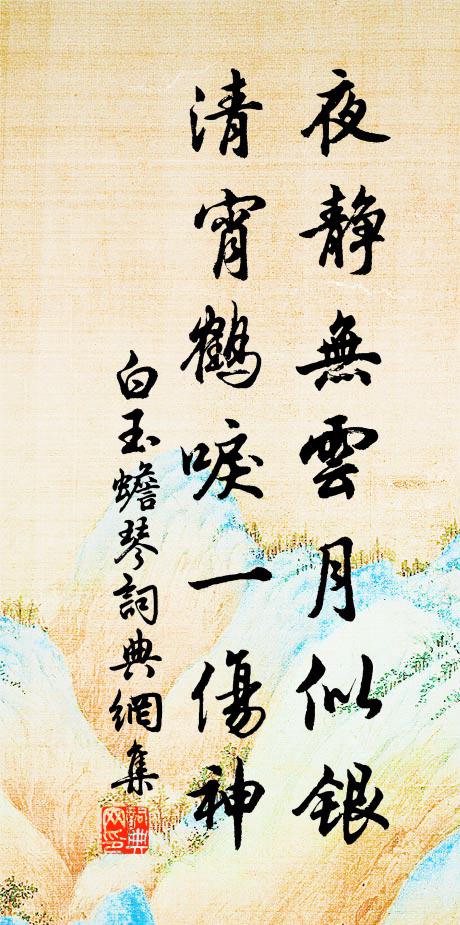 夜静無雲月似银
清宵鶴唳一傷神
白玉蟾琴詞典網集
詞典